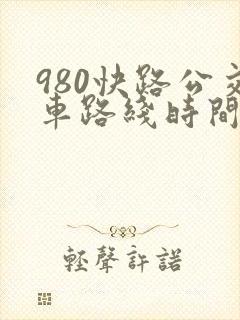 980快路公交
車路綫時間
輕聲許諾